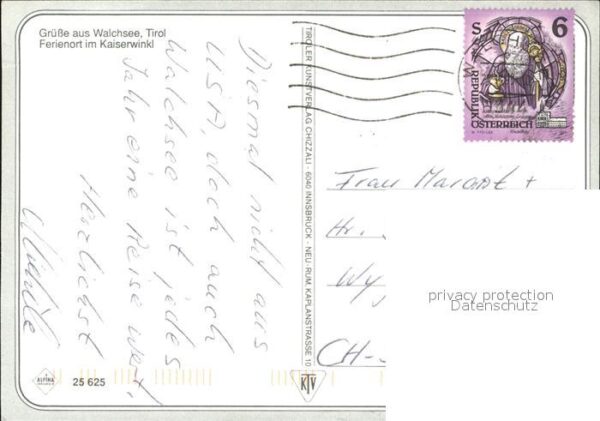 Grüße aus Walchsee, Tirol
Ferienort im Kaiserwinkl
Diesmal nicht aus
USA, doch auch
Walchsee ist jedes
Jahr eine Reise wert.
Herzlichst
TIROLER KUNSTVERLAG CHIZZALI · 6040 INNSBRUCK - NEU-RUM, KAPLANSTRASSE 10
S 6
REPUBLIK
ÖSTERREICH
Frau Margot +
Hr.
Wy
CH-
privacy protection
Datenschutz
ALPINA
25 625
KTV